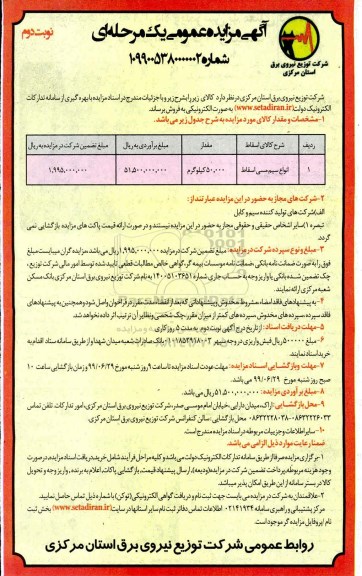 آگهی مزایده عمومی یک مرحله‌ای
نوبت دوم
شماره ۱۰۹۹۰۰۵۳۸۰۰۰۰۰۰۲
شرکت توزیع نیروی برق
استان مرکزی
شرکت توزیع نیروی برق استان مرکزی در نظر دارد کالای زیر را بشرح زیر و با جزئیات مندرج در اسناد مزایده با بهره گیری از سامانه تدارکات
الکترونیک دولت (www.setadiran.ir) به صورت الکترونیکی به فروش برساند.
۱-مشخصات و مقدار کالای مورد مزایده به شرح جدول زیر می‌باشد.
ردیف شرح کالای اسقاط مقدار مبلغ برآوردی به ریال مبلغ تضمین شرکت در مزایده به ریال
۱ انواع سیم مسی اسقاط ۵۰,۰۰۰ کیلوگرم ۵۱,۵۰۰,۰۰۰,۰۰۰ ۱,۹۹۵,۰۰۰,۰۰۰
۲-شرکت های مجاز به حضور در این مزایده عبارتند از:
الف)شرکت های تولید کننده سیم و کابل
تبصره ۱)سایر اشخاص حقیقی و حقوقی مجاز به حضور در این مزایده نیستند و در صورت ارائه قیمت پاکت های مزایده بازگشایی نمی
گردد
۳-مبلغ و نوع سپرده شرکت در مزایده: مبلغ تضمین شرکت در مزایده ۱,۹۹۵,۰۰۰,۰۰۰ ریال می باشد مزایده گران میبایست مبلغ
فوق را به صورت ضمانت نامه بانکی، ضمانت نامه موسسات بیمه گر، گواهی خالص مطالبات قطعی تایید شده توسط امور مالی شرکت توزیع،
چک تضمین شده بانکی یا واریز وجه به حساب جاری شماره بنام شرکت توزیع نیروی برق استان مرکزی بانک مسکن
شعبه مرکزی ارائه نمایند.
۴-به پیشنهادهای فاقد امضاء، مشروط، مخدوش و پیشنهاداتی که بعد از انقضاء مدت مقرر در فراخوان واصل شود و همچنین به پیشنهادهای
فاقد سپرده، سپرده های مخدوش، سپرده های کمتر از میزان مقرر، چک شخصی و نظایر آن ترتیب اثر داده نخواهد شد.
۵-مهلت دریافت اسناد: از تاریخ درج آگهی نوبت دوم به مدت ۵ روز کاری
۶-مبلغ ۵۰۰۰۰۰ ریال فیش واریزی در وجه سپهر بانک صادرات شعبه میدان شهدا و از طریق سامانه ستاد اقدام به
خرید اسناد نمایند.
۷-مهلت و بازگشایی اسناد مزایده: مهلت عودت اسناد مزایده تا ساعت ۹ روز شنبه مورخ ۹۹/۰۶/۲۹ و زمان بازگشایی ساعت ۱۰
صبح روز شنبه مورخ ۹۹/۰۶/۲۹ می باشد.
۸-مبلغ برآوردی مزایده: ۵۱,۵۰۰,۰۰۰,۰۰۰ ریال می باشد.
۹-محل بازگشایی: اراک، میدان دارایی، خیابان امام موسی صدر، شرکت توزیع نیروی برق استان مرکزی، امور تدارکات. تلفن تماس
محل بازگشایی: سالن کنفرانس شرکت توزیع نیروی برق استان مرکزی.
۱۰-سایر اطلاعات و جزییات مربوطه در اسناد مزایده مندرج است.
ضمنا رعایت موارد ذیل الزامی می باشد.
۱-برگزاری مزایده صرفا از طریق سامانه تدارکات الکترونیک دولت می باشد و کلیه مراحل فرآیند شامل خرید، دریافت اسناد مزایده، در صورت
وجود هزینه مربوطه، پرداخت تضمین شرکت در مزایده(ودیعه)، ارسال پیشنهاد قیمت، بازگشایی پاکات، اعلام به برنده، واریز وجه و تحویل
کالا در بستر سامانه از این طریق امکان پذیر میباشد.
۲-علاقمندان به شرکت در مزایده می بایست جهت ثبت نام و دریافت گواهی الکترونیکی (توکن) با شماره ذیل تماس حاصل نمایید.
مرکز پشتیبانی و راهبری سامانه ۰۲۱۴۱۹۳۴ اطلاعات تماس دفاتر ثبت نام سایر استانها در سایت (www.setadiran.ir) بخش ثبت
نام/پروفایل مزایده گر موجود است.
روابط عمومی شرکت توزیع نیروی برق استان مرکزی